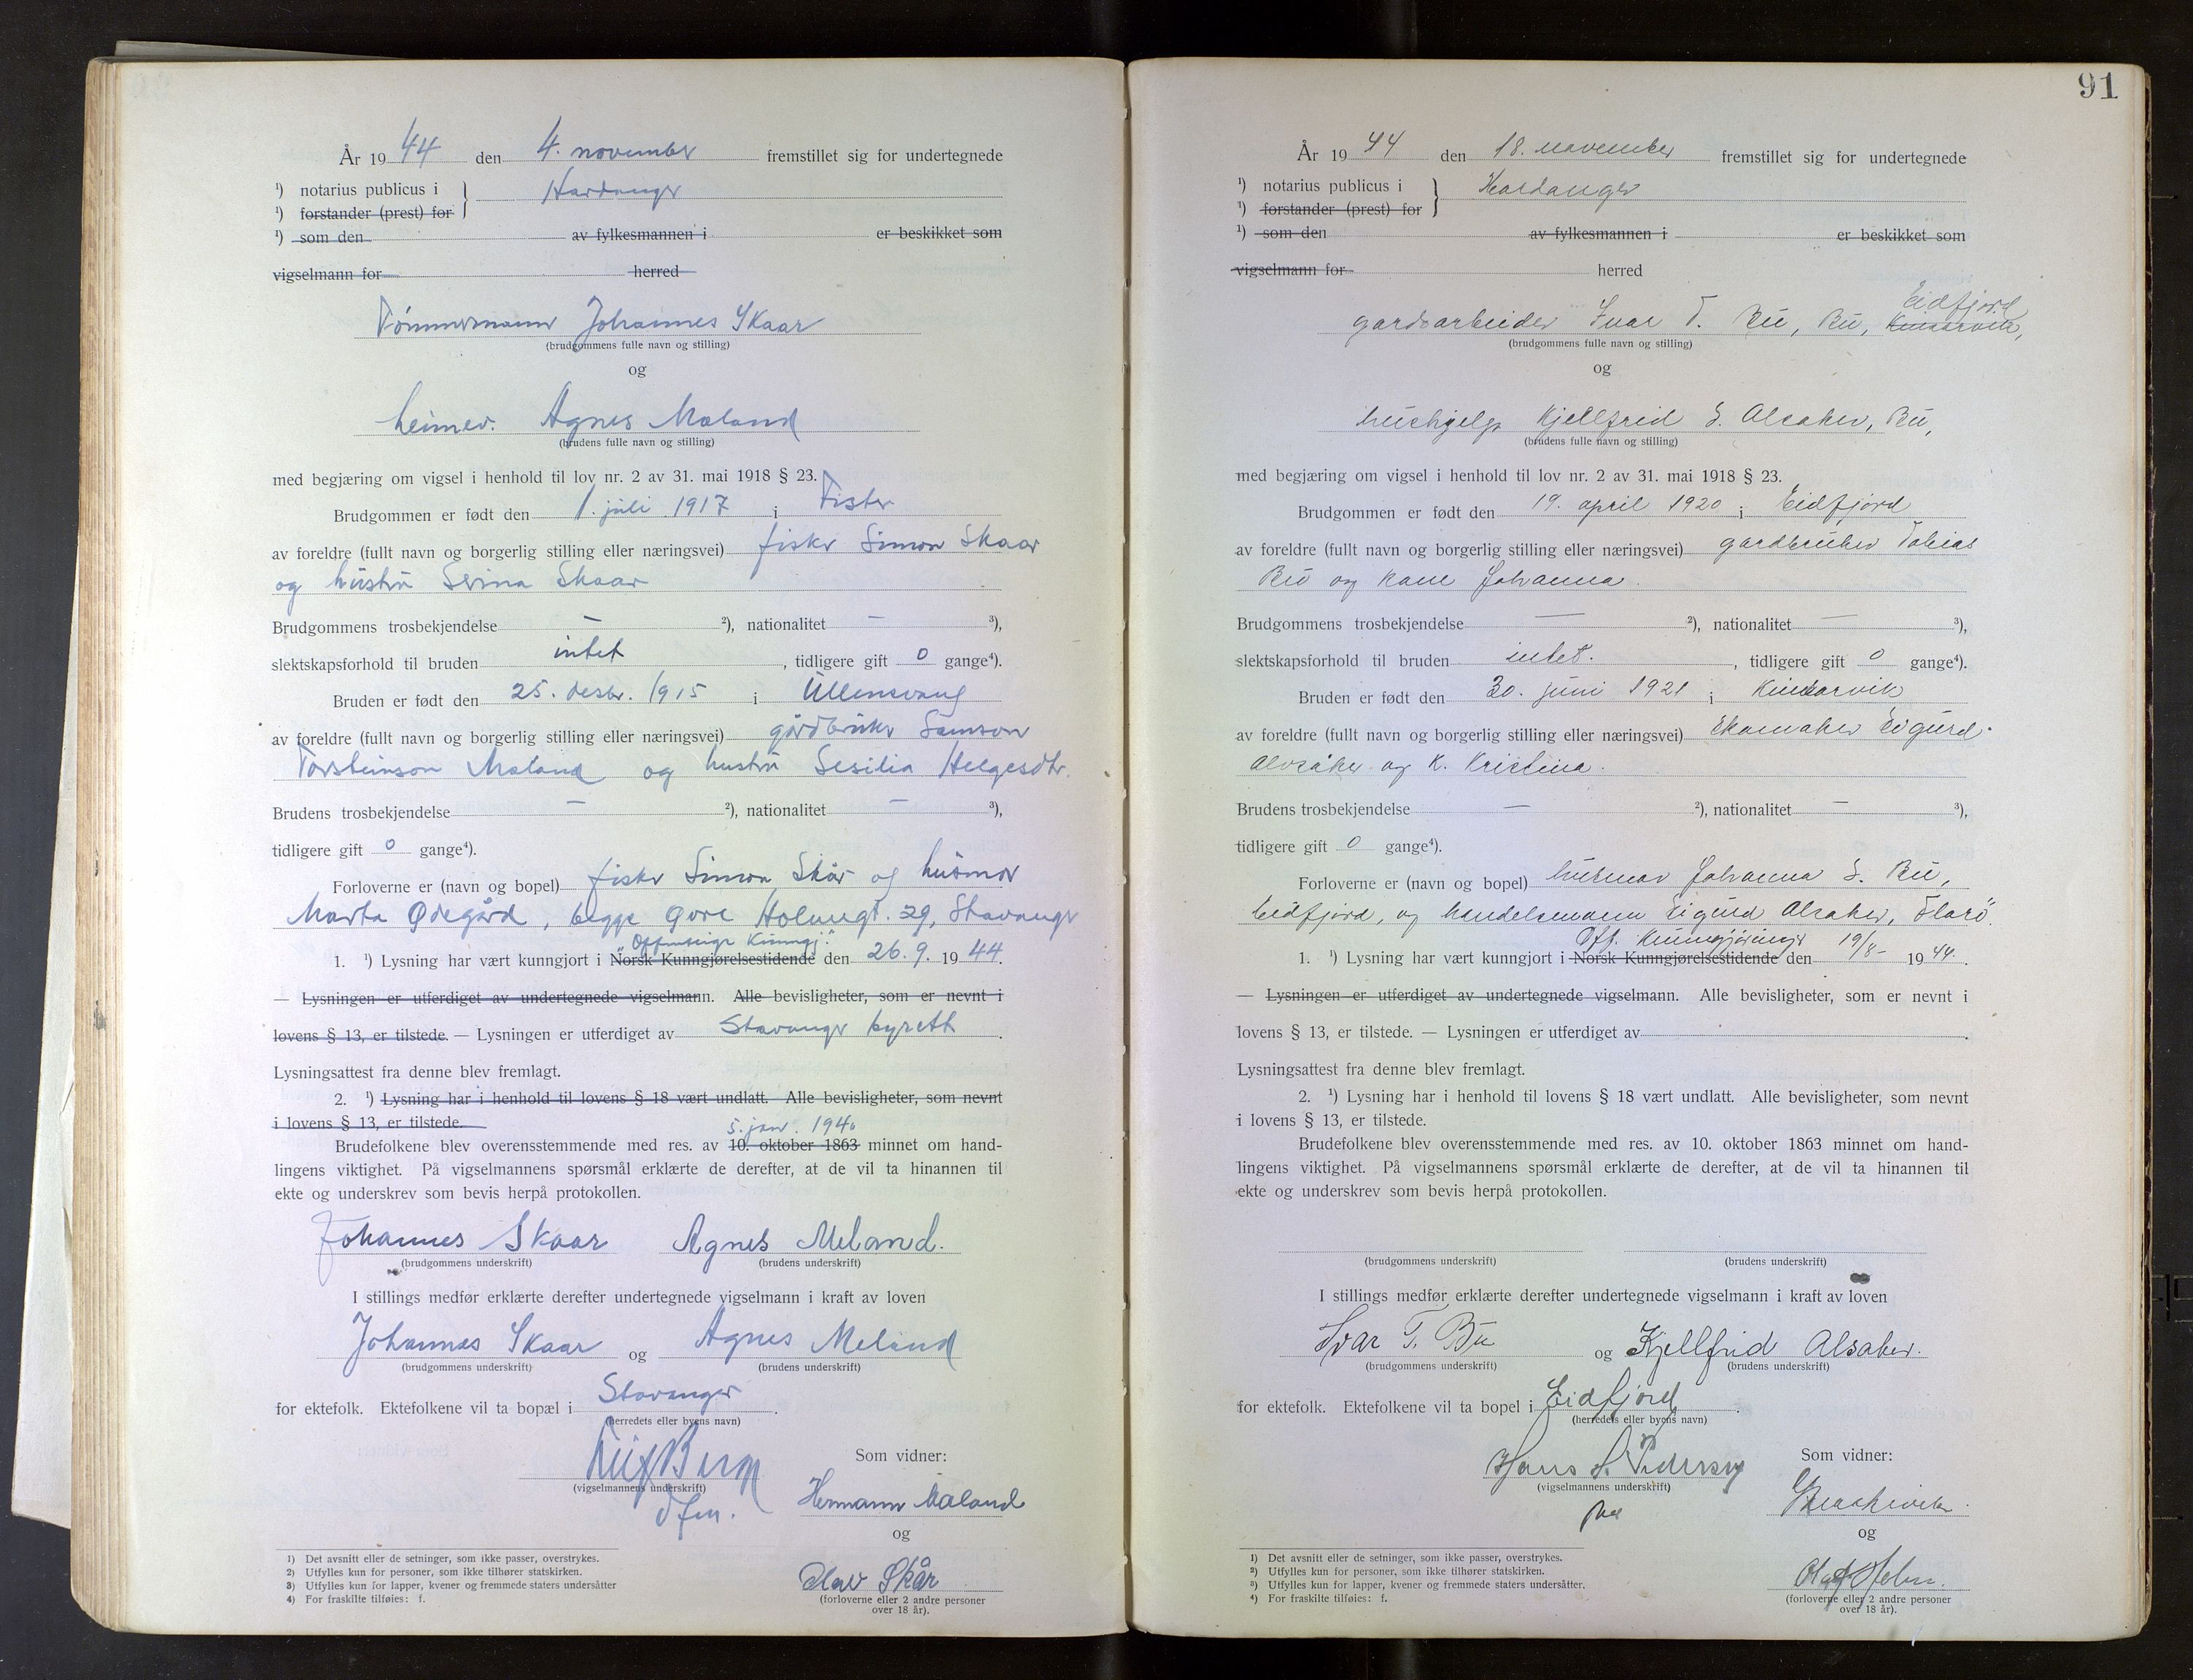 År 1944 den 4. november fremstillet sig for undertegnede
¹) notarius publicus i } Hardanger
¹) forstander (prest) for
¹) som den av fylkesmannen i er beskikket som
vigselmann for herred
Tømmermann Johannes Skaar
(brudgommens fulle navn og stilling)
og
heimev. Agnes Mæland
(brudens fulle navn og stilling)
med begjæring om vigsel i henhold til lov nr. 2 av 31. mai 1918 § 23.
Brudgommen er født den 1. juli 1917 i Fister
av foreldre (fullt navn og borgerlig stilling eller næringsvei) fisker Simon Skaar
og hustru Serina Skaar
Brudgommens trosbekjendelse — ²), nationalitet — ³),
slektskapsforhold til bruden intet, tidligere gift 0 gange⁴).
Bruden er født den 25. desbr. 1915 i Ullensvang
av foreldre (fullt navn og borgerlig stilling eller næringsvei) gårdbruker Samson
Torsteinson Mæland og hustru Sesilia Helgesdtr.
Brudens trosbekjendelse — ²), nationalitet — ³),
tidligere gift 0 gange⁴).
Forloverne er (navn og bopel) fisker Simon Skår og husmor
Marta Ødegård, begge Øvre Holmegt. 29, Stavanger
"Offentlige Kunngj."
1. ¹) Lysning har vært kunngjort i Norsk Kunngjørelsestidende den 26.9. 1944.
— Lysningen er utferdiget av undertegnede vigselmann. Alle bevisligheter, som er nevnt i
lovens § 13, er tilstede. — Lysningen er utferdiget av Stavanger byrett.
Lysningsattest fra denne blev fremlagt.
2. ¹) Lysning har i henhold til lovens § 18 vært undlatt. Alle bevisligheter, som nevnt
i lovens § 13, er tilstede.
5. jan. 1940
Brudefolkene blev overensstemmende med res. av 10. oktober 1863 minnet om hand-
lingens viktighet. På vigselmannens spørsmål erklærte de derefter, at de vil ta hinannen til
ekte og underskrev som bevis herpå protokollen.
Johannes Skaar Agnes Meland.
(brudgommens underskrift) (brudens underskrift)
I stillings medfør erklærte derefter undertegnede vigselmann i kraft av loven
Johannes Skaar og Agnes Meland
(brudgommens underskrift) (brudens underskrift)
for ektefolk. Ektefolkene vil ta bopæl i Stavanger.
(herredets eller byens navn)
Som vidner:
(vigselmannens underskrift)
Hermann Mæland
og
Olav Skår
(forloverne eller 2 andre personer
over 18 år).
1) Det avsnitt eller de setninger, som ikke passer, overstrykes.
2) Utfylles kun for personer, som ikke tilhører statskirken.
3) Utfylles kun for lapper, kvener og fremmede staters undersåtter
4) For fraskilte tilføies: f.
91
År 1944 den 18. november fremstillet sig for undertegnede
¹) notarius publicus i } Hardanger
¹) forstander (prest) for
¹) som den av fylkesmannen i er beskikket som
vigselmann for herred
Eidfjord
gardsarbeider Ivar T. Bu, Bu, Kinsarvik,
(brudgommens fulle navn og stilling)
og
hushjelp Kjellfrid S. Alsaker, Bu,
(brudens fulle navn og stilling)
med begjæring om vigsel i henhold til lov nr. 2 av 31. mai 1918 § 23.
Brudgommen er født den 19. april 1920 i Eidfjord
av foreldre (fullt navn og borgerlig stilling eller næringsvei) gardbruker Tobias
Bu og kone Johanna.
Brudgommens trosbekjendelse — ²), nationalitet — ³),
slektskapsforhold til bruden intet., tidligere gift 0 gange⁴).
Bruden er født den 30. juni 1921 i Kinsarvik
av foreldre (fullt navn og borgerlig stilling eller næringsvei) Skomaker Sigurd
Alsåker og k. Kristina.
Brudens trosbekjendelse — ²), nationalitet — ³),
tidligere gift 0 gange⁴).
Forloverne er (navn og bopel) husmor Johanna S. Bu,
Eidfjord, og handelsmann Sigurd Alsaker,
Off. Kunngjøringer
1. ¹) Lysning har vært kunngjort i Norsk Kunngjørelsestidende den 19/8- 1944.
— Lysningen er utferdiget av undertegnede vigselmann. Alle bevisligheter, som er nevnt i
lovens § 13, er tilstede. — Lysningen er utferdiget av .
Lysningsattest fra denne blev fremlagt.
2. ¹) Lysning har i henhold til lovens § 18 vært undlatt. Alle bevisligheter, som nevnt
i lovens § 13, er tilstede.
Brudefolkene blev overensstemmende med res. av 10. oktober 1863 minnet om hand-
lingens viktighet. På vigselmannens spørsmål erklærte de derefter, at de vil ta hinannen til
ekte og underskrev som bevis herpå protokollen.
(brudgommens underskrift) (brudens underskrift)
I stillings medfør erklærte derefter undertegnede vigselmann i kraft av loven
Ivar T. Bu og Kjellfrid Alsaker.
(brudgommens underskrift) (brudens underskrift)
for ektefolk. Ektefolkene vil ta bopel i Eidfjord.
(herredets eller byens navn)
Hans S. Pedersen
Som vidner:
(vigselmannens underskrift)
og
(forloverne eller 2 andre personer
over 18 år).
1) Det avsnitt eller de setninger, som ikke passer, overstrykes.
2) Utfylles kun for personer, som ikke tilhører statskirken.
3) Utfylles kun for lapper, kvener og fremmede staters undersåtter.
4) For fraskilte tilføies: f.